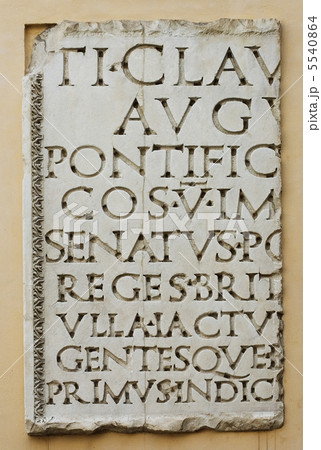 TI·CLAV
AVGV
PONTIFIC
COS·V̄·IM
SENATVS·PO
REGES·BRIT
VLLA·IACTV
GENTESQVE
PRIMVS·INDIC
pixta.jp - 5540864
PIXTA